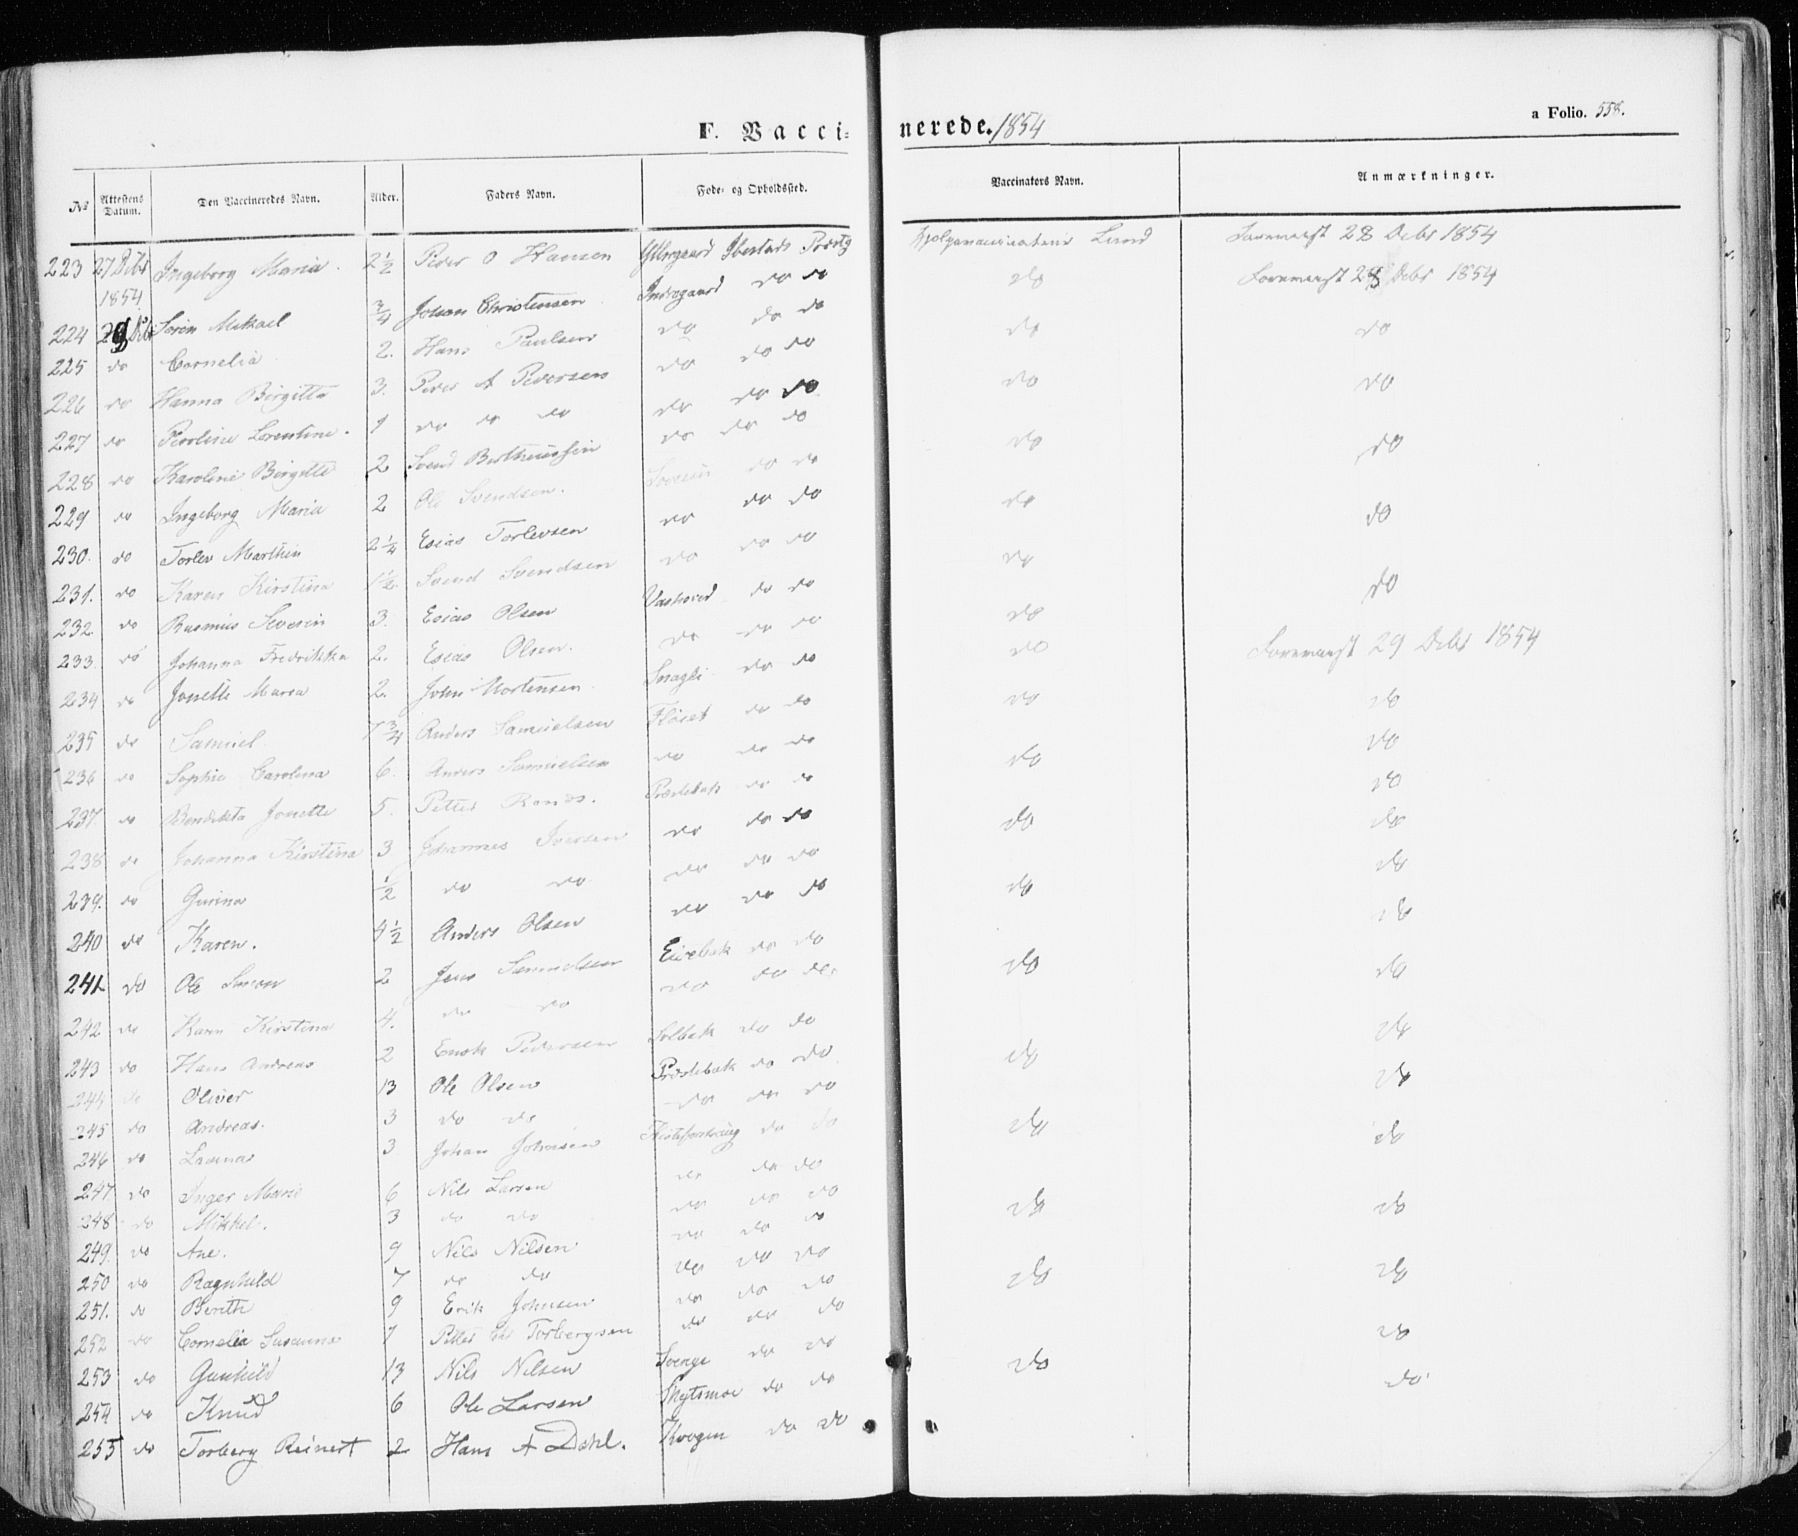 F. Vacci-
nerede. 1854
a Folio. 558.
No
Attestens Datum.
Den Vaccineredes Navn.
Alder.
Faders Navn.
Føde- og Opholdssted.
Vaccinators Navn.
Anmærkninger.
223 27 Debr 1854 Ingeborg Maria. 2½ Peder O Hansen Ibestads Præstg Lund Forevaagt 28 Debr 1854
224 Søren Mikael ¾ Johan Christensen Indregaard do do do Forevaagt 28 Debr 1854
225 do Cornelia 2. Hans Paulsen do do do do do
226 do Hanna Birgitta 3. Peder A Pedersen do do do do do
227 do Peroline Lorentine. 1 do do do do do do
228 do Karoline Birgitte 2 Svend Bertheussen do do do do do
229 do Ingeborg Maria 2 Ole Svendsen. do do do do
230. do Torlev Marthin 2¼ Esias Torlevsen do do do do do
231. do Karen Kirstina 1½. Svend Svendsen do do do
232 do Rasmus Severin 3. Esias Olsen do do do do
233. do Johanna Fredrikka 2. Esias Olsen. do do do do Forevaagt 29 Debr 1854
234 do Jonette Marea 2. John Mortensen do do do do
235 do Samuel 1¾ Anders Samuelsen Fløset do do do
236 do Sophie Carolina 6. Anders Samuelsen do do do do do
237. do Bendikta Jonette 5. Petter Rands. Præstebak do do do
238 do Johanna Kirstina 3 Johannes Iversen do do do do do
239. do Gurina ½ do do do do do do
240 do Karen. 4½ Anders Olsen do do do do do
241. do Ole Simon 2 Jens Samuelsen Eidebak do do do do
242 do Karen Kirstina 4. do do do do do do
243 do Hans Andreas 2 Enok Pedersen Solbak do do do do
244 do Oliver 13 Ole Olsen Præstebak do do do
245 do Andreas. 3 do do do do do do do
246 do Lavina 3 Johan Johnsen do do
247. do Inger Marie 6 Nils Larsen do do do do do
248 do Mikkel. 3 do do do do do
249. do Ane. 9 Nils Nilsen do do do
250 do Ragnhild 7 do do do do do do do
251. do Berith 9 Erik Johnsen do do do
252 do Cornelia Susanna 1 Petter Torbergsen do do do do
253 do Gunhild 13 Nils Nilsen do do do do
254 do Knud 6 Ole Larsen Skytsmoe do do
255 do Torberg Reinert 2 Hans A Dahl. Krogen do do